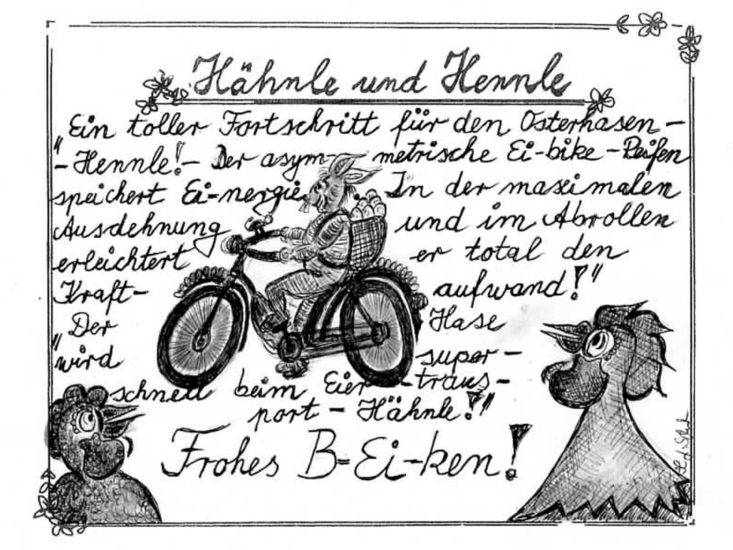 Hähnle und Hennle
"Ein toller Fortschritt für den Osterhasen-
-Hennle!- Der asym- metrische Ei-bike-Reifen
speichert Ei-nergie. In der maximalen
Ausdehnung und im Abrollen
erleichtert er total den
Kraft- aufwand!"
"Der Hase
wird super-
schnell beim Eier-trans-
port-Hähnle!"
Frohes B-Ei-ken!